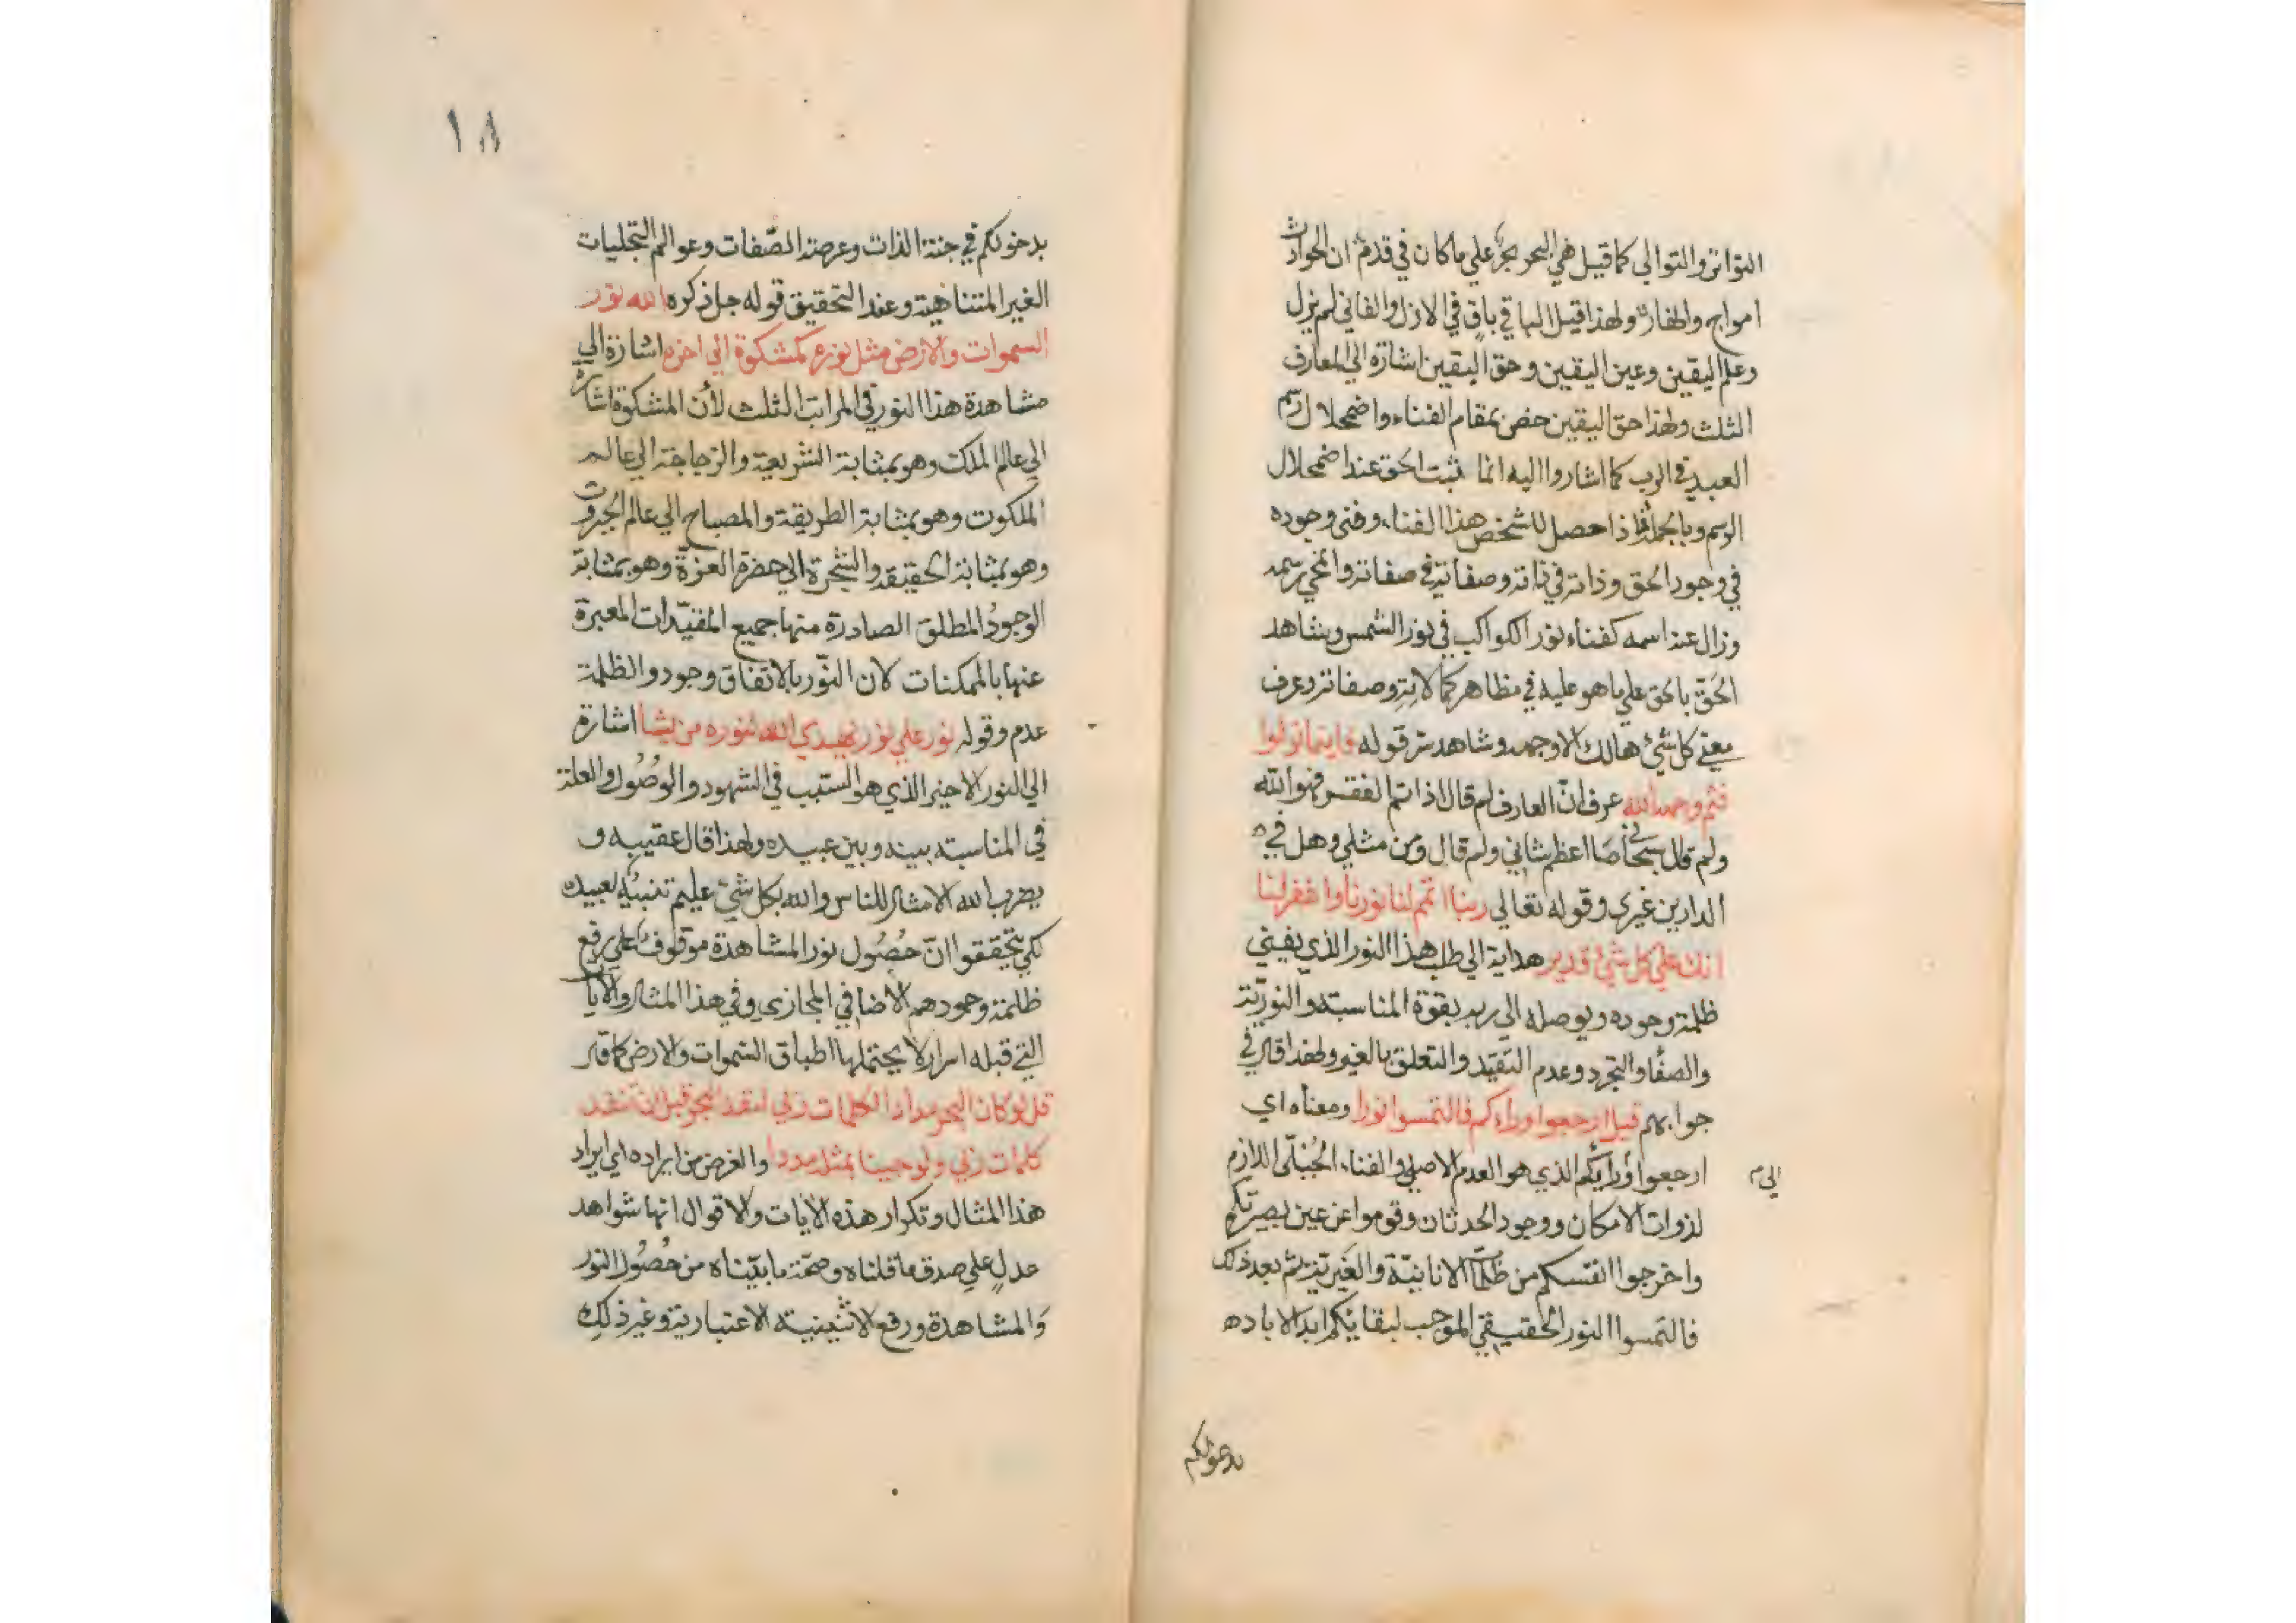 التواتر والتوالي كما قيل هي البحر بحر علي ما كان في قدم ان الحوادث
امواج وانهار ولهذا قيل الباقي باق في الازل والفاني لم يزل
وعلم اليقين وعين اليقين وحق اليقين اشارة الي المعارف
الثلث ولهذا حق اليقين خص بمقام الفناء واضمحلال رسم
العبيد في الرب كما اشاروا اليه انما يثبت الحق عند اضمحلال
الرسم وبالجملة فاذا حصل للشخص هذا الفناء وفني وجوده
في وجود الحق وذاته في ذاته وصفاته في صفاته وانمحي رسمه
وزال عنه اسمه كفناء نور الكواكب في نور الشمس وشاهد
الحَقّ بالحق علي ما هو عليه في مظاهر كمالاتِهِ وصفاته وعرف
معني كل شيءٍ هالك الا وجهه وشاهد سر قوله فاينما تولوا
فثم وجه الله عرف انّ العارف لم قال اذا تم الفقر فهو الله
ولم قال سبحاني ما اعظم شاني ولم قال ومن مثلي وهل في
الدارين غيري وقوله تعالي ربنا اتمم لنا نورنا واغفر لنا
انك علي كل شيء قدير هداية الي طلب هذا النور الذي يفني
ظلمة وجوده ويوصله الي ربه بقوة المناسبة والنوريّة
والصفا والتجرد وعدم التقيّد والتعلق بالغير ولهذا قال في
جوابهم قيل ارجعوا وراءكم فالتمسوا نورا ومعناه اي
ارجعوا ورايكم الذي هو العدم الاصلي والفناء الجُبُلّي اللازم
الي م
لذوات الامكان ووجود الحدثان وقوموا عن عين بصيرتكم
واخرجوا انفسكم من ظلمات الانانيّة والغَيريّة ثم بعد ذلك
فالتمسوا النور الحقيقي الموجب لبقايكم ابد الاباد ه
بدخولكم
١٨
بدخولكم في جنة الذات وعرصة الصّفات وعوالم التجليات
الغير المتناهية وعند التحقيق قوله جل ذكره الله نور
السموات والارض مثل نوره كمشكوة الي اخره اشارة الي
مشاهدة هذا النور في المراتب الثلث لأن المشكوة اشارة
الي عالم الملك وهو بمثابة الشريعة والزجاجة الي عالم
الملكوت وهو بمثابة الطريقة والمصباح الي عالم الجبروت
وهو بمثابة الحقيقة والشجرة الي حضرة العزّة وهو بمثابة
الوجودُ المطلق الصادرة منها جميع المقيّدات المعبرة
عنها بالممكنات لان النّور بالاتفاق وجود والظلمة
عدم وقوله نور علي نور يهدي الله لنوره من يشا اشارة
الي النور الاخير الذي هو السبب في الشهود والوُصُول والعلة
في المناسبة بينه وبين عبيده ولهذا قال عقيبه و
يضرب الله الامثال للناس والله بكل شيء عليم تنبيْهٍ لعبيده
لكي يتحققوا انّ حُصُول نور المشاهدة موقوف علي رفع
ظلمة وجودهم الأضافي المجازي وفي هذا المثال والآيات
التي قبله اسرار لا يحتملها اطباق السموات والارض كما قال
قل لو كان البحر مدادا لكلمات ربي لنفد البحر قبل ان تنفد
كلمات ربي ولو جينا بمثله مددا والغرض من ايراده اي ايراد
هذا المثال وتكرار هذه الآيات والاقوال انها شواهد
عدلٍ علي صدق ما قلناه وصحّة ما بيّناه من حُصُول النور
وَالمشاهدة ورفع الاثنينية الاعتبارية وغير ذلك